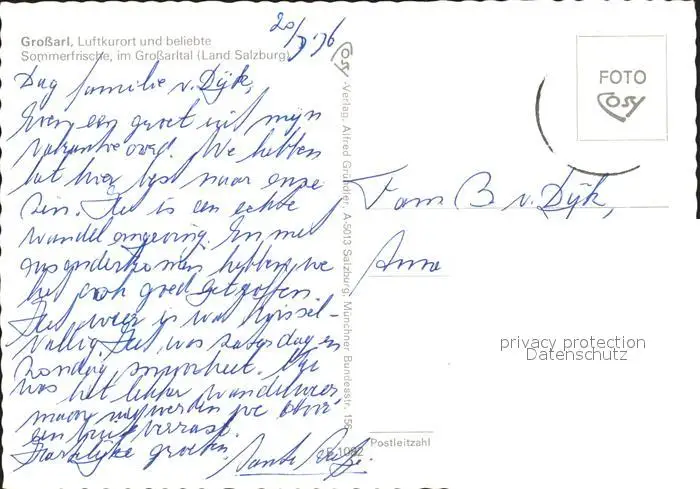 Großarl, Luftkurort und beliebte
Sommerfrische, im Großarltal (Land Salzburg)
20/9 '76
Dag familie v. Dijk,
Even een groet uit mijn
vakantieoord. We hebben
het hier best naar onze
zin. Het is een echte
wandel omgeving. En met
ons onderkomen hebben we
het ook goed getroffen.
Het weer is wat wissel-
vallig. Het was zaterdag en
zondag
was het lekker wandelweer
maar nu werden we door
een bui verrast.
Hartelijke groeten.
Tante
Cosy-Verlag, Alfred Gründler, A-5013 Salzburg, Münchner Bundesstr. 156
FOTO
Cosy
Fam B v. Dijk,
privacy protection
Datenschutz
Postleitzahl